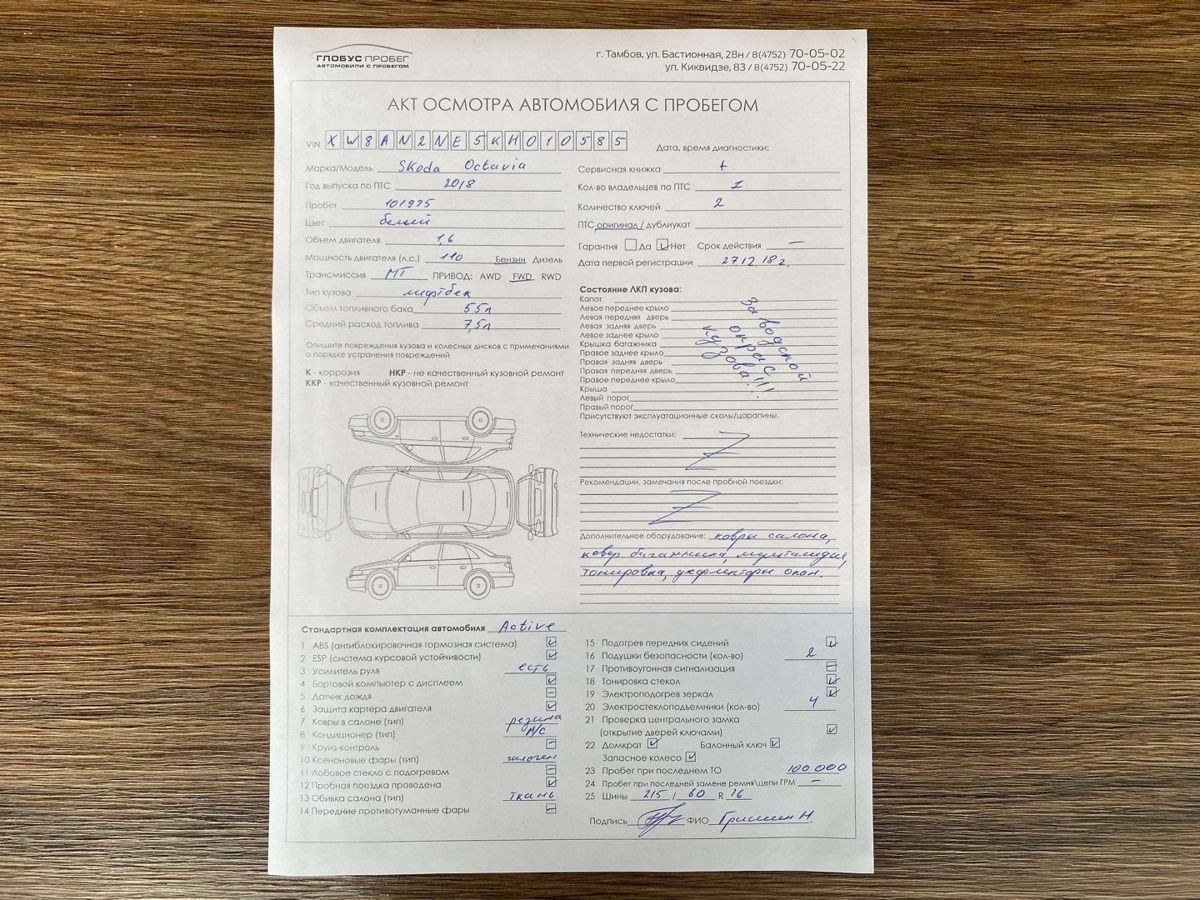 ГЛОБУС ПРОБЕГ
АВТОМОБИЛИ С ПРОБЕГОМ
г. Тамбов, ул. Бастионная, 28н / 8(4752) 70-05-02
ул. Киквидзе, 83 / 8(4752) 70-05-22
АКТ ОСМОТРА АВТОМОБИЛЯ С ПРОБЕГОМ
VIN XW8AN2NE5KH010585
Марка/Модель Skoda Octavia
Год выпуска по ПТС 2018
Пробег 101995
Цвет белый
Объем двигателя 1,6
Мощность двигателя (л.с.) 110 Бензин Дизель
Трансмиссия МТ ПРИВОД: AWD FWD RWD
Тип кузова лифтбек
Объем топливного бака 55л
Средний расход топлива 7,5л
Опишите повреждения кузова и колесных дисков с примечаниями
о порядке устранения повреждений
К - коррозия НКР - не качественный кузовной ремонт
ККР - качественный кузовной ремонт
Дата, время диагностики:
Сервисная книжка +
Кол-во владельцев по ПТС 1
Количество ключей 2
ПТС оригинал / дубликат
Гарантия Да Нет Срок действия —
Дата первой регистрации 27.12.18г.
Состояние ЛКП кузова:
Капот
Левое переднее крыло
Левая передняя дверь
Левая задняя дверь
Левое заднее крыло
Крышка багажника
Правое заднее крыло
Правая задняя дверь
Правая передняя дверь
Правое переднее крыло
Крыша
Левый порог
Правый порог
Заводской
окрас
кузова!!!
Присутствуют эксплуатационные сколы/царапины.
Технические недостатки: Z
Рекомендации, замечания после пробной поездки:
Z
Дополнительное оборудование: ковры салона,
ковер багажника, мультимедия,
тонировка, дефлекторы окон.
Стандартная комплектация автомобиля Active
1 ABS (антиблокировочная тормозная система)
2 ESP (система курсовой устойчивости)
3 Усилитель руля есть
4 Бортовой компьютер с дисплеем
5 Датчик дождя
6 Защита картера двигателя
7 Ковры в салоне (тип) резина
8 Кондиционер (тип) A/C
9 Круиз-контроль
10 Ксеноновые фары (тип) галоген
11 Лобовое стекло с подогревом
12 Пробная поездка проведена
13 Обивка салона (тип) ткань
14 Передние противотуманные фары
15 Подогрев передних сидений
16 Подушки безопасности (кол-во) 2
17 Противоугонная сигнализация
18 Тонировка стекол
19 Электроподогрев зеркал
20 Электростеклоподъемники (кол-во) 4
21 Проверка центрального замка
(открытие дверей ключами)
22 Домкрат Балонный ключ
Запасное колесо
23 Пробег при последнем ТО 100.000
24 Пробег при последней замене ремня\цепи ГРМ —
25 Шины 215 / 60 R 16
Подпись ФИО Гришин Н.